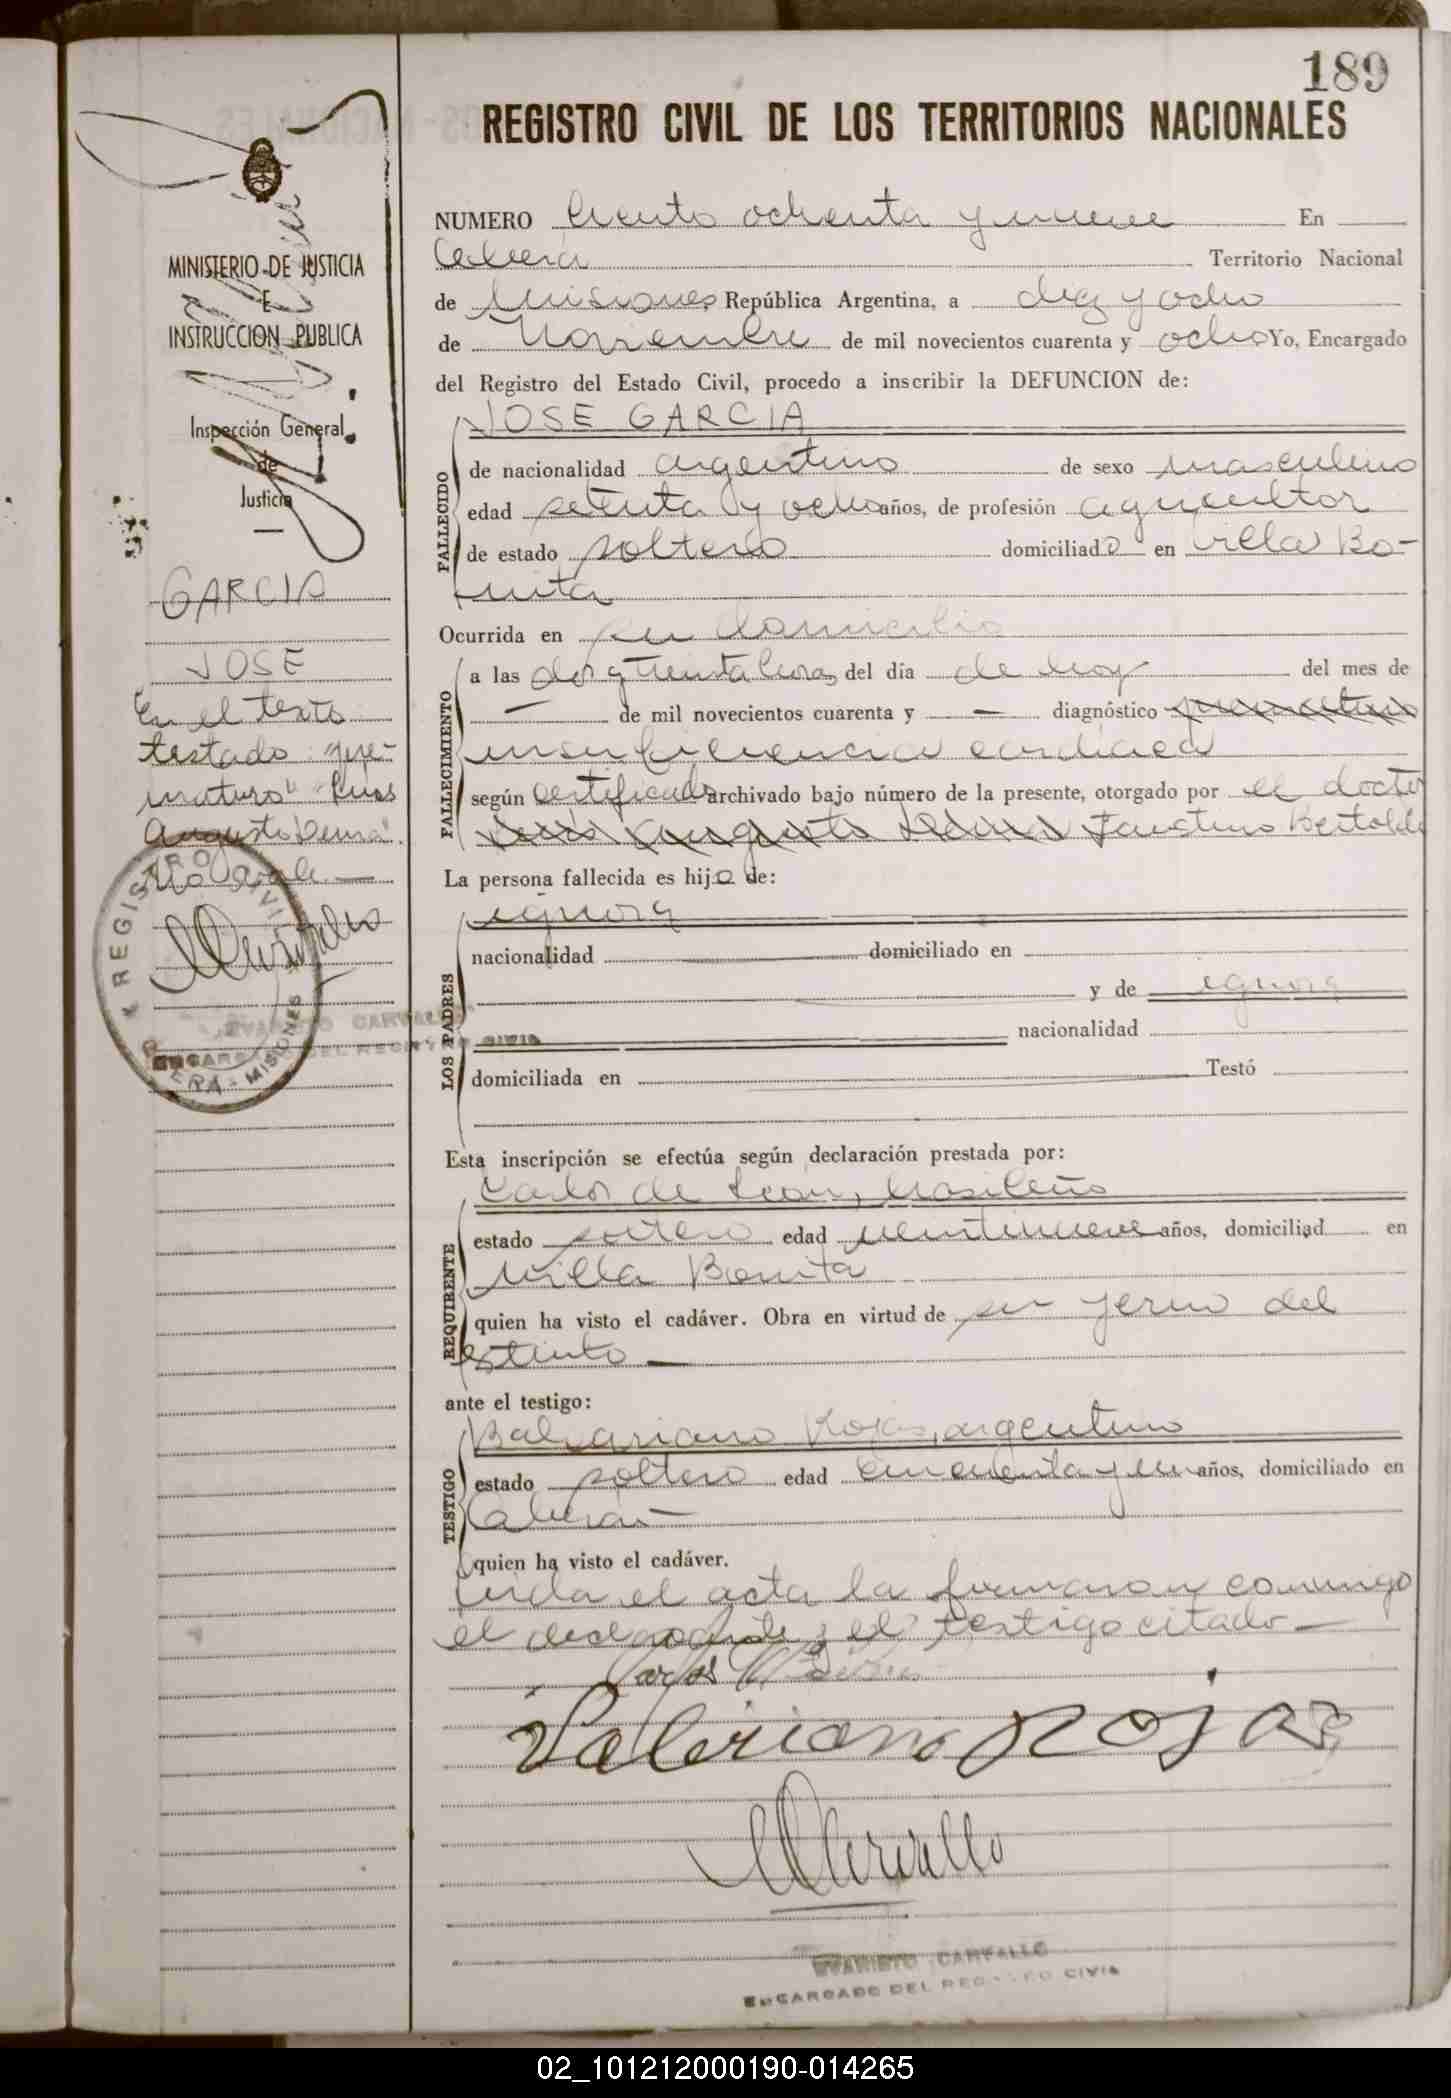 189
REGISTRO CIVIL DE LOS TERRITORIOS NACIONALES
MINISTERIO DE JUSTICIA
E
INSTRUCCION PUBLICA
Inspección General
de
Justicia
GARCIA
JOSE
En el texto
testado "pre-
maturo" "Luis
Augusto Derna"
No vale.—
REGISTRO CIVIL
OBERA - MISIONES
EVARISTO CARVALLO
ENCARGADO DEL REGISTRO CIVIL
NUMERO Ciento ochenta y nueve En
Oberá Territorio Nacional
de Misiones República Argentina, a diez y ocho
de Noviembre de mil novecientos cuarenta y ocho Yo, Encargado
del Registro del Estado Civil, procedo a inscribir la DEFUNCION de:
JOSE GARCIA
FALLECIDO
de nacionalidad argentino de sexo masculino
edad setenta y ocho años, de profesión agricultor
de estado soltero domiciliado en Villa Bo-
nita
Ocurrida en su domicilio
FALLECIMIENTO
a las dos y treinta horas del día de hoy del mes de
— de mil novecientos cuarenta y — diagnóstico prematuro
insuficiencia cardíaca
según certificado archivado bajo número de la presente, otorgado por el doctor
Luis Augusto Derna Faustino Bertoldi
La persona fallecida es hijo de:
LOS PADRES
ignora
nacionalidad domiciliado en
y de ignora
nacionalidad
domiciliada en Testó
Esta inscripción se efectúa según declaración prestada por:
REQUIRENTE
Carlos de Lear, brasileño
estado soltero edad veintinueve años, domiciliad en
Villa Bonita
quien ha visto el cadáver. Obra en virtud de ser yerno del
extinto —
ante el testigo:
TESTIGO
Baleariano Rojas, argentino
estado soltero edad cincuenta y un años, domiciliado en
Oberá —
quien ha visto el cadáver.
Leída el acta la firmaron conmigo
el declarante y el testigo citado —
Carlos
Valeriano Rojas
E Carvallo
EVARISTO CARVALLO
ENCARGADO DEL REGISTRO CIVIL
02_101212000190-014265